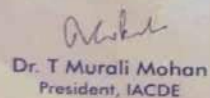 Dr. T Murali Mohan
President, IACDE